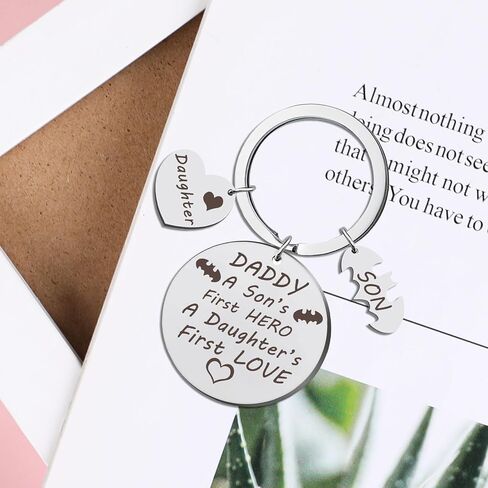 Almost nothing
being does not see
that might not w
others. You have to
Daughter
SON
DADDY
A Son's
First HERO
A Daughter's
First LOVE